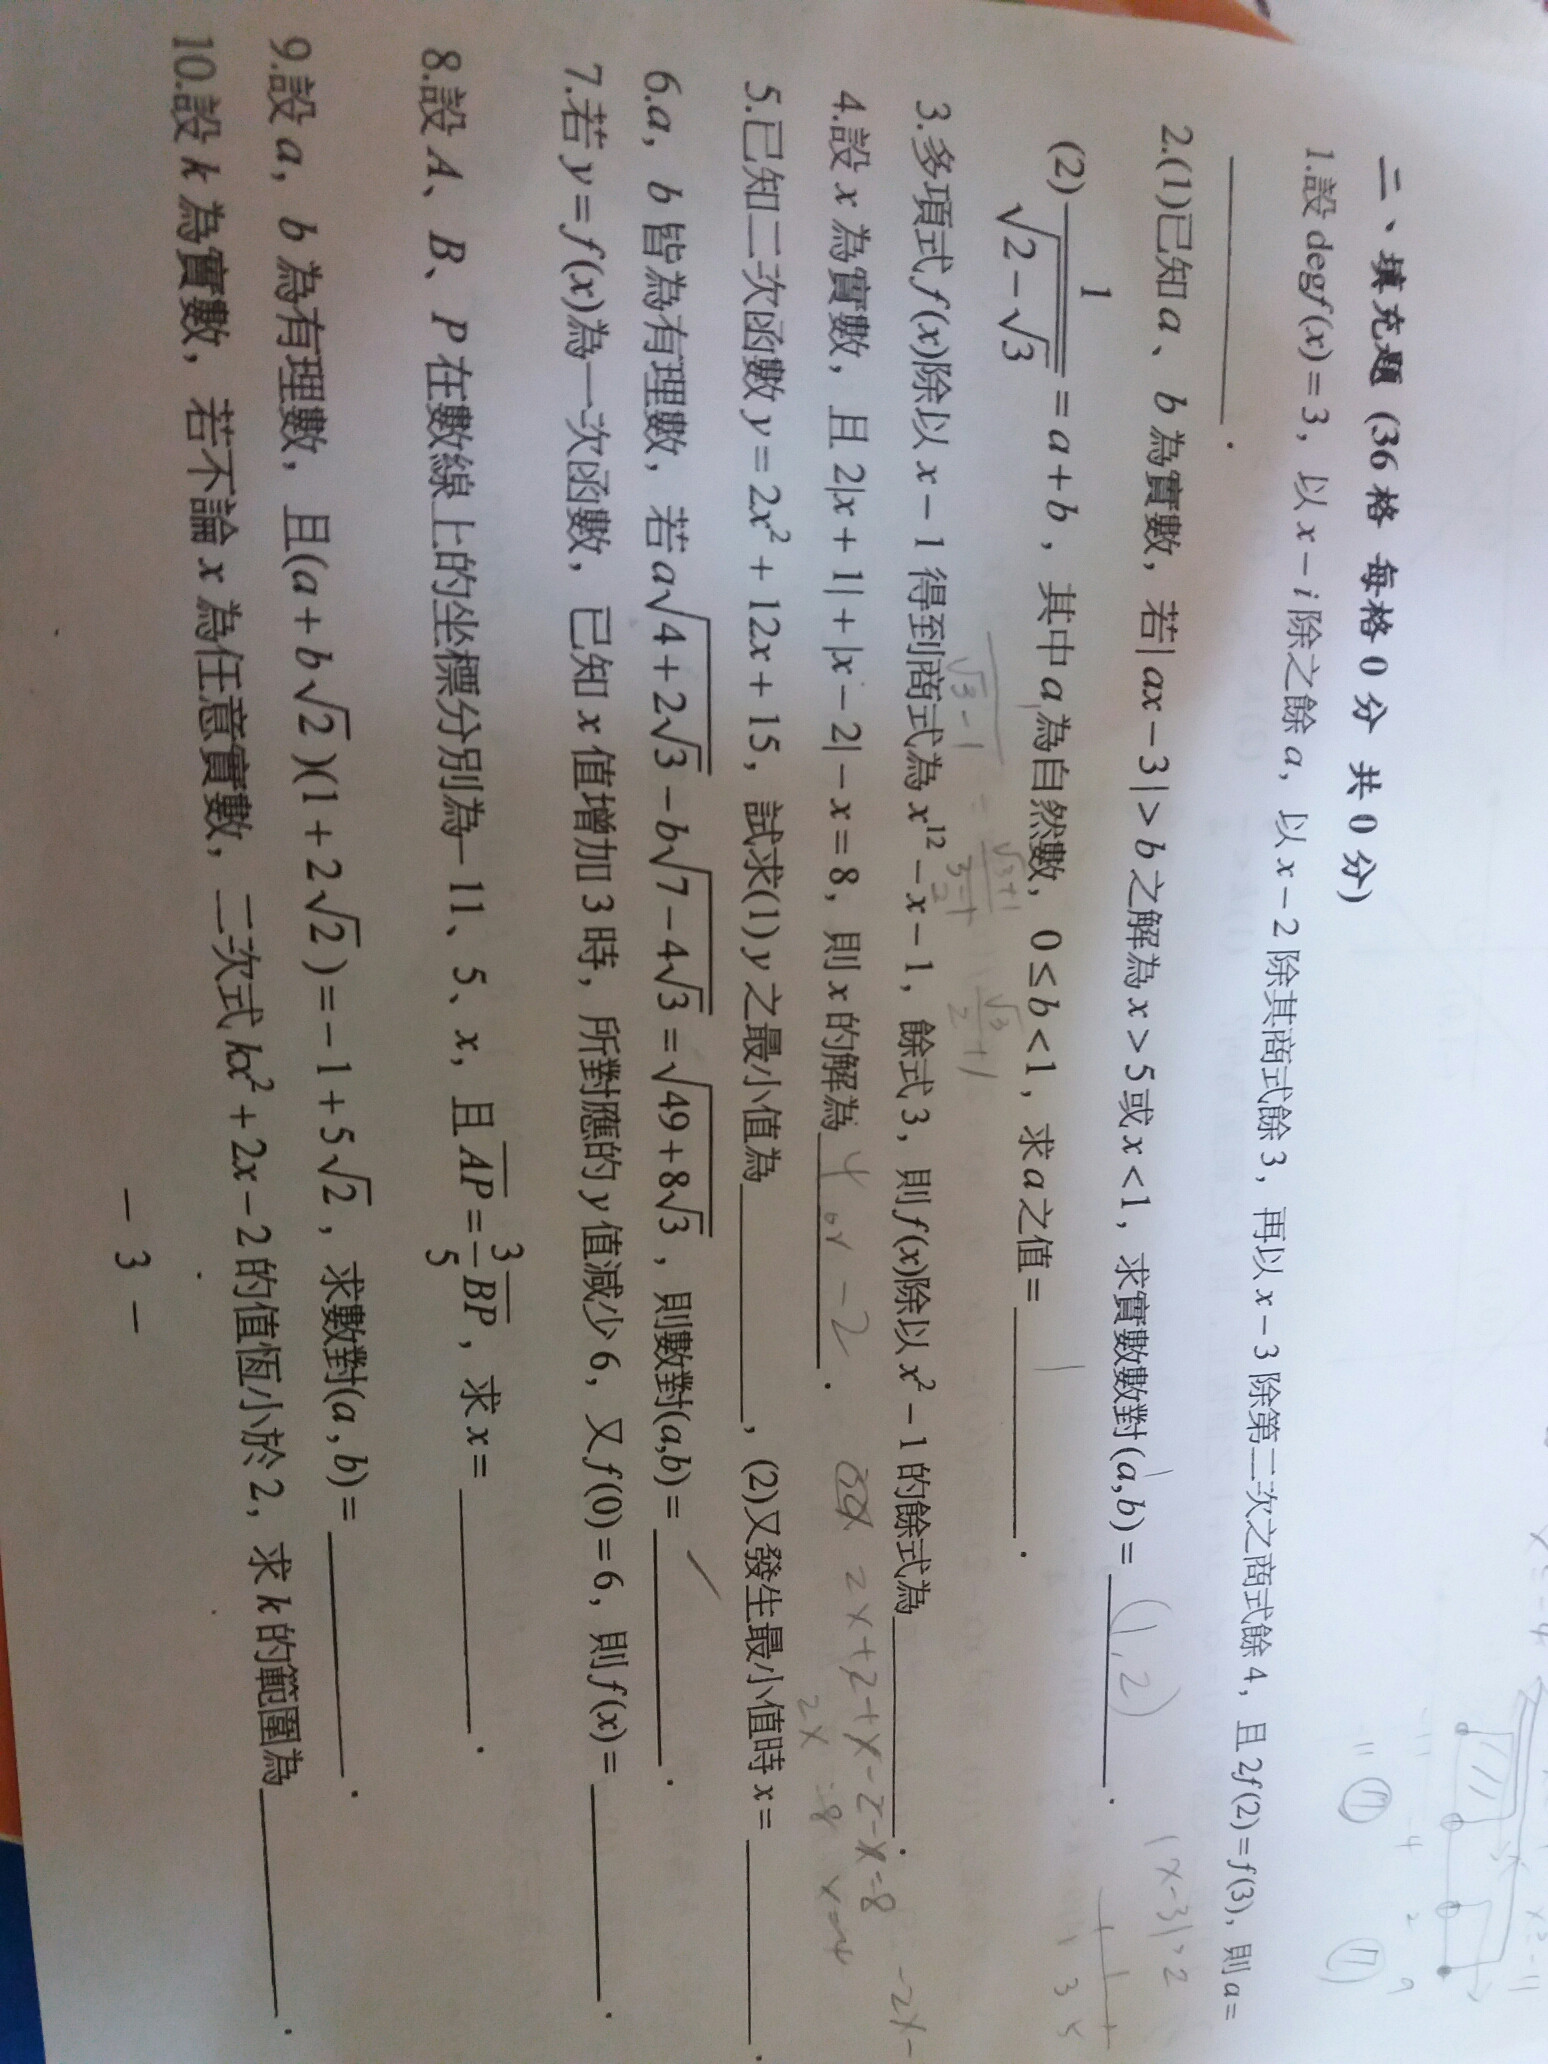 二、填充題 (36 格 每格 0 分 共 0 分)
1.設 degf(x)=3，以 x-i 除之餘 a，以 x-2 除其商式餘 3，再以 x-3 除第二次之商式餘 4，且 2f(2)=f(3)，則 a=
________．
2.(1)已知 a、b 為實數，若|ax-3|>b 之解為 x>5 或 x<1，求實數數對(a,b)=(1,2)．
|x-3|>2
(2) 1/√(2-√3) = a+b，其中 a 為自然數，0≤b<1，求 a 之值=________．
3.多項式 f(x)除以 x-1 得到商式為 x¹²-x-1，餘式 3，則 f(x)除以 x²-1 的餘式為________．
4.設 x 為實數，且 2|x+1|+|x-2|-x=8，則 x 的解為 4 or -2．
2x+2+x-2-x=8
2x=8 x=4
5.已知二次函數 y=2x²+12x+15，試求(1) y 之最小值為________，(2)又發生最小值時 x=________．
6.a，b 皆為有理數，若 a√(4+2√3)-b√(7-4√3)=√(49+8√3)，則數對(a,b)=________．
7.若 y=f(x)為一次函數，已知 x 值增加 3 時，所對應的 y 值減少 6，又 f(0)=6，則 f(x)=________．
8.設 A、B、P 在數線上的坐標分別為-11、5、x，且 AP=3/5 BP，求 x=________．
9.設 a，b 為有理數，且(a+b√2)(1+2√2)=-1+5√2，求數對(a,b)=________．
10.設 k 為實數，若不論 x 為任意實數，二次式 kx²+2x-2 的值恆小於 2，求 k 的範圍為________．
- 3 -